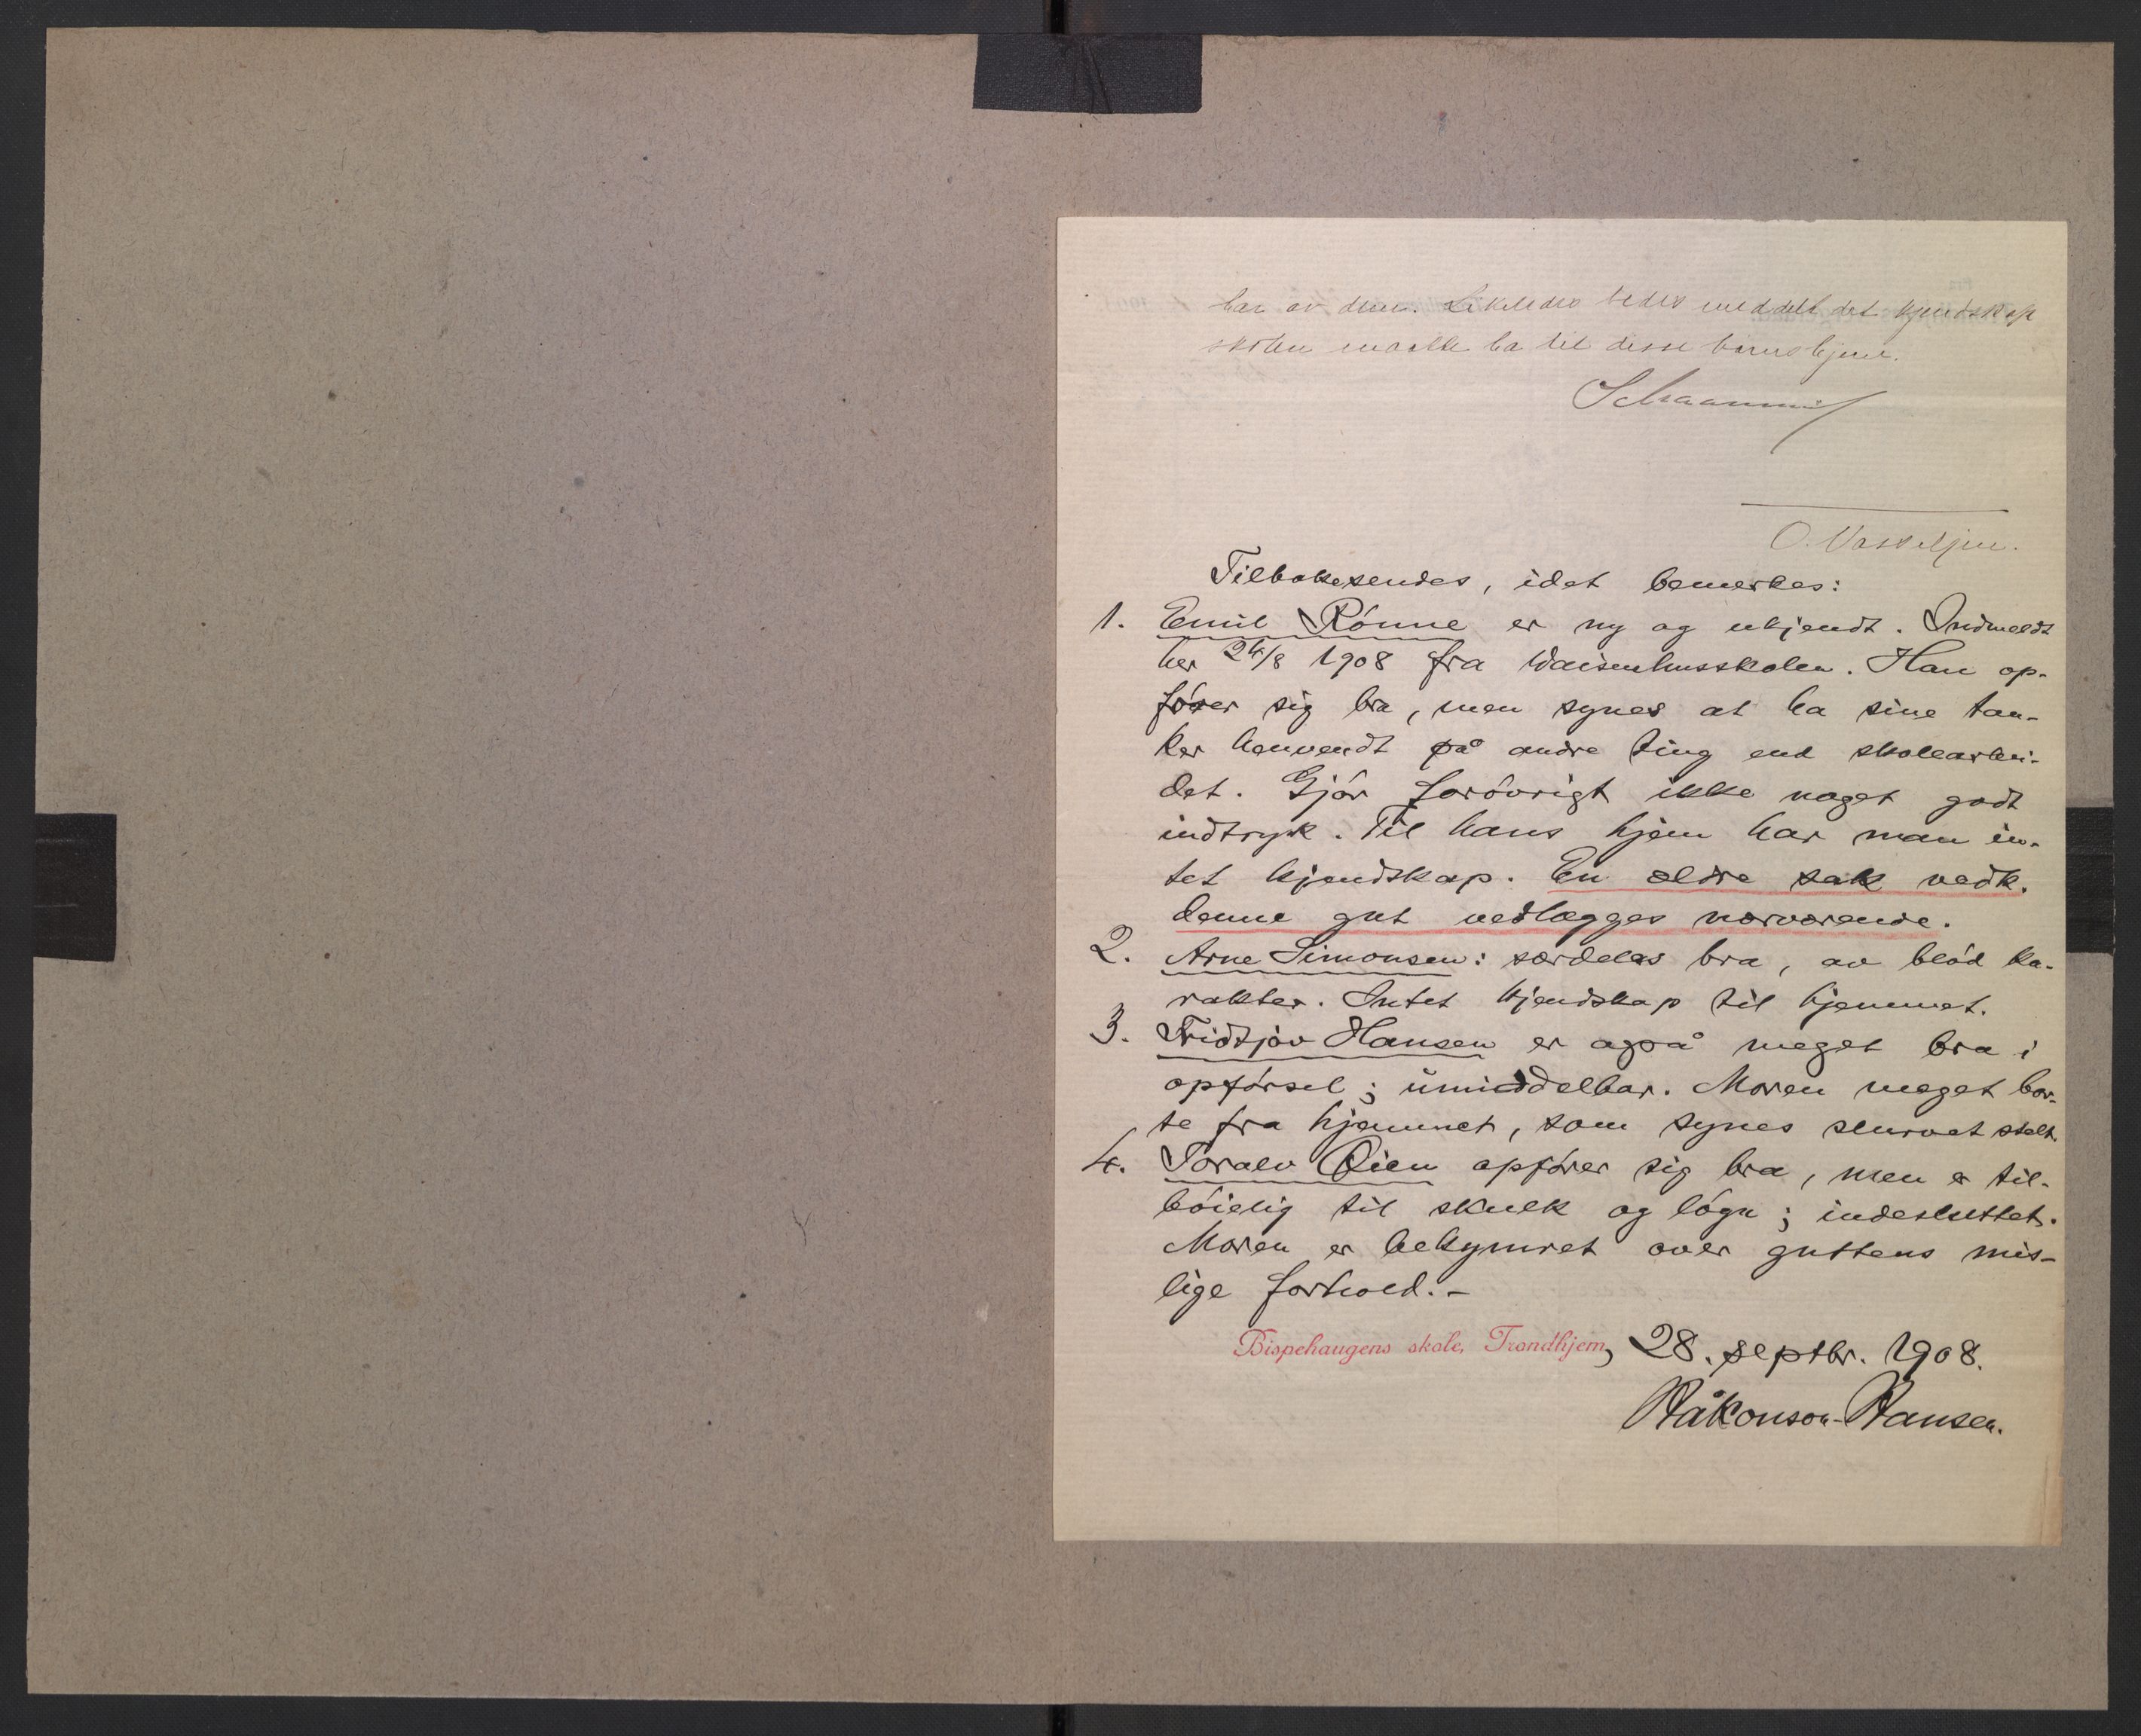 har av dem. Likeledes bedes meddelt det kjendskap
skolen maatte ha til disse barns hjem.
O. Vasseljen.
Tilbakesendes, idet bemerkes:
1. Emil Rónne er ny og ukjendt. Indmeldt
her 24/8 1908 fra Waisenhusskolen. Han op-
fórer sig bra, men synes at ha sine tan-
ker henvendt på andre ting end skolearbei-
det. Gjór foróvrigt ikke noget godt
indtryk. Til hans hjem har man in-
tet kjendskap. En ældre sak vedk.
denne gut vedlægges nærværende.
2. Arne Simonsen: særdeles bra, av blód ka-
rakter. Intet kjendskap til hjemmet.
3. Fridtjov Hansen er også meget bra i
opfórsel; umiddelbar. Moren meget bor-
te fra hjemmet, som synes slurvet stelt.
4. Toralv Öien opfórer sig bra, men er til-
bóielig til skulk og lógn; indesluttet.
Moren er bekymret over guttens mis-
lige forhold. –
Bispehaugens skole, Trondhjem, 28. septbr. 1908.
Håkonson-Hansen.